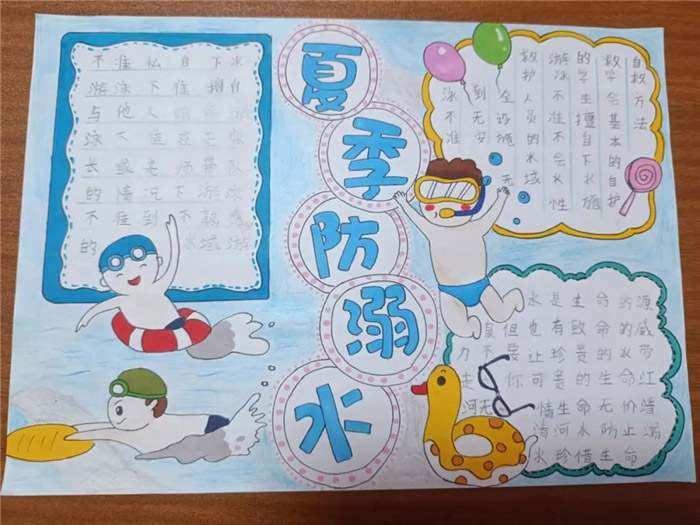 夏季防溺水
不准私自下水
游泳下准擅自
与他人
泳不准在
长或老师带队
的情况下游泳
不准到不熟悉
的 水域游
自救方法
教学会基本的自护
的学生擅自下水施
游泳不准不会水性
救护人员的水域
全设施 无
到无安
泳不准
水是生命的源
泉但也有致命的威
力不要让珍贵的水带
走 你可贵的生命江
河无 情生命无价请
河水防止溺
水珍惜生命